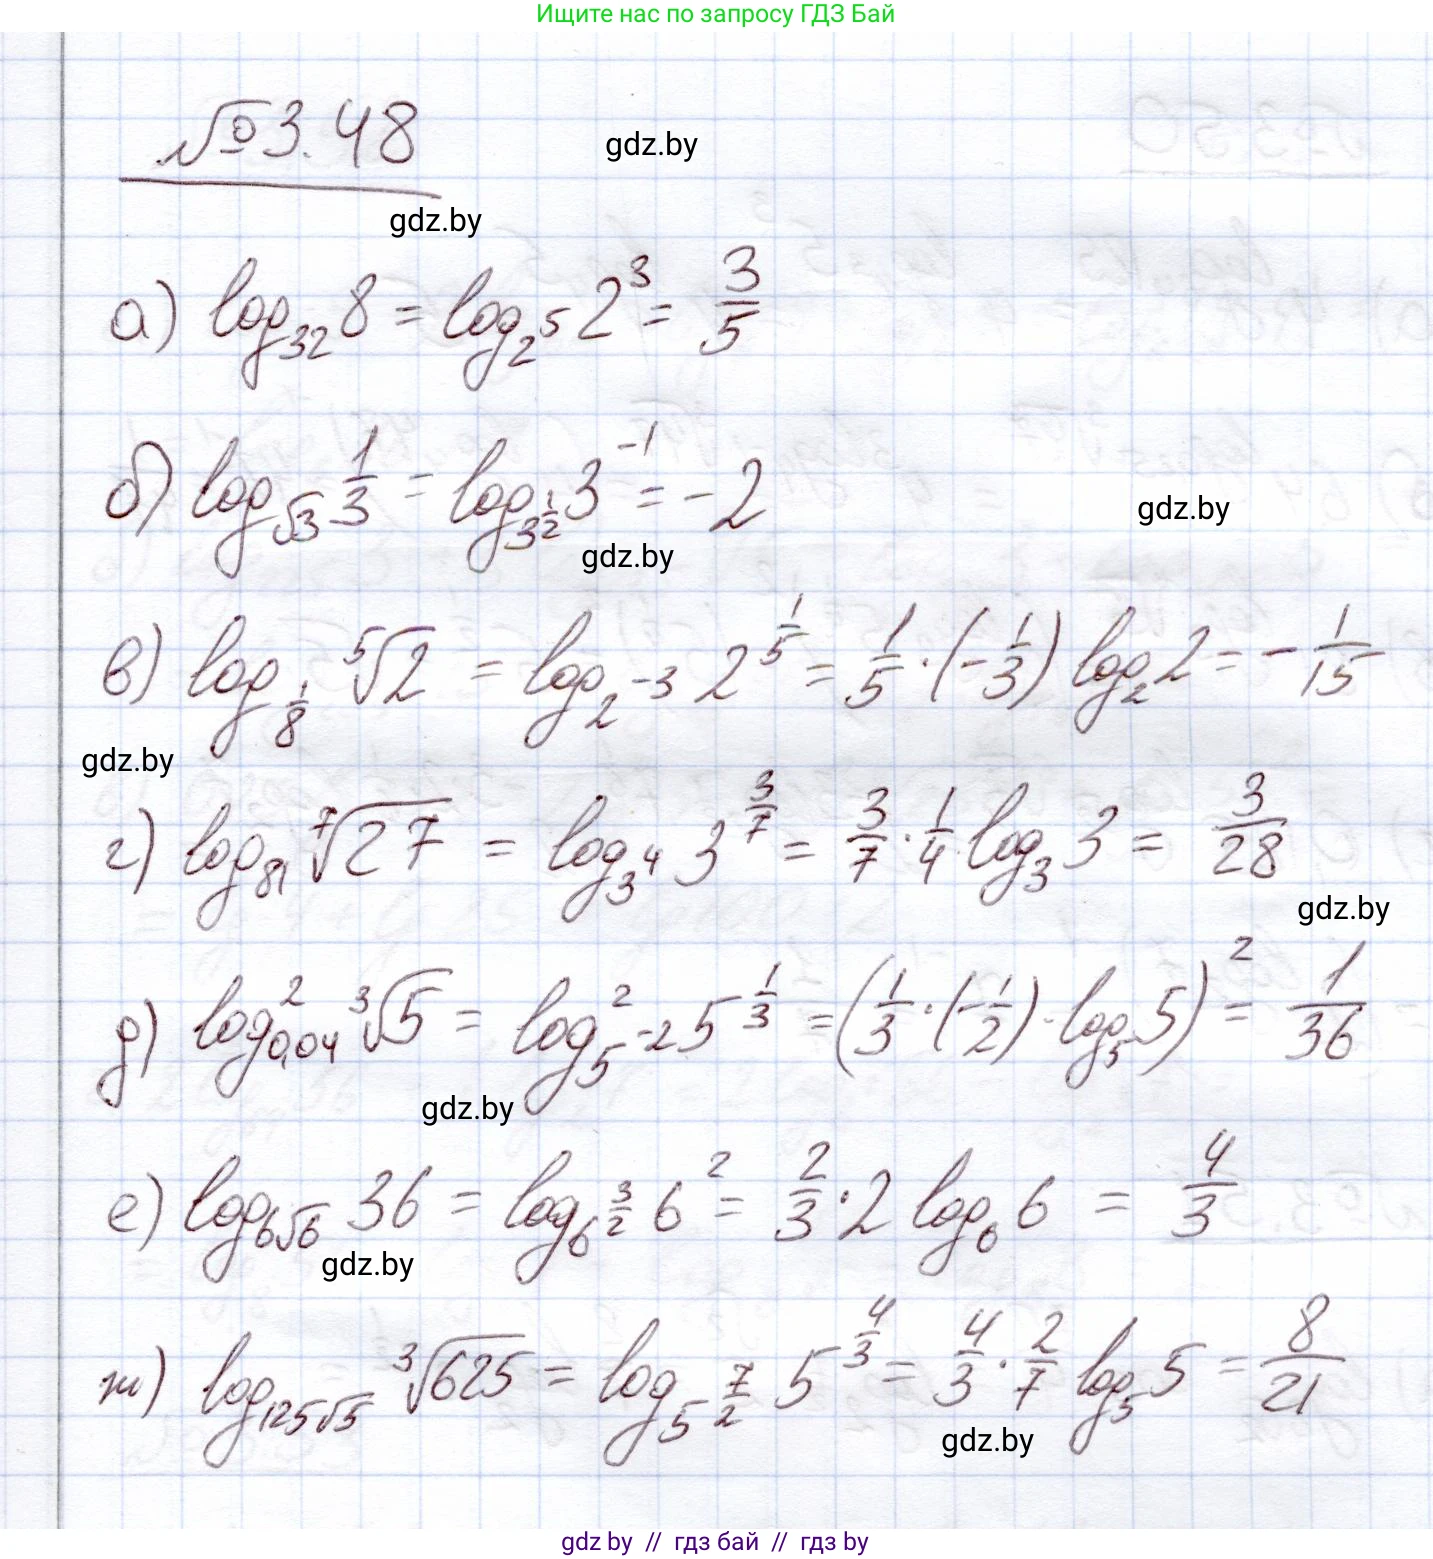 Ищите нас по запросу ГДЗ Бай
№3.48
gdz.by
gdz.by
а) log₃₂ 8 = log_{2^5} 2^3 = 3/5
б) log_{√3} 1/3 = log_{3^{1/2}} 3^{-1} = -2
gdz.by
gdz.by
в) log_{1/8} ⁵√2 = log_{2^{-3}} 2^{1/5} = 1/5 · (-1/3) log₂ 2 = -1/15
gdz.by
г) log₈₁ ⁷√27 = log_{3^4} 3^{3/7} = 3/7 · 1/4 log₃ 3 = 3/28
gdz.by
д) log²_{0,04} ³√5 = log²_{5^{-2}} 5^{1/3} = (1/3 · (-1/2) · log₅ 5)² = 1/36
gdz.by
е) log_{6√6} 36 = log_{6^{3/2}} 6² = 2/3 · 2 log₆ 6 = 4/3
gdz.by
ж) log_{125√5} ³√625 = log_{5^{7/2}} 5^{4/3} = 4/3 · 2/7 log₅ 5 = 8/21
gdz.by
gdz by // гдз бай // гдз by